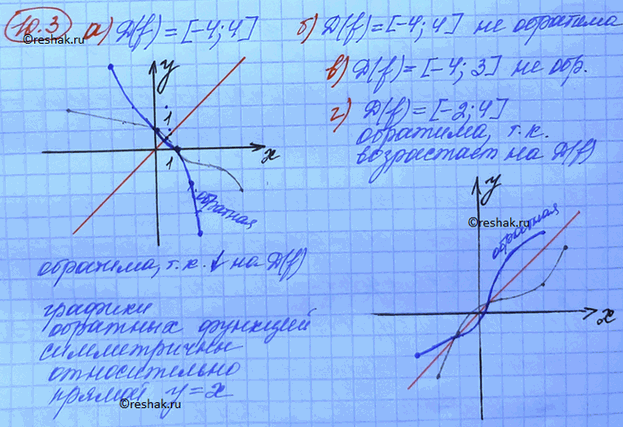 10.3 а) D(f) = [-4; 4]
©reshak.ru
y
1
1
x
обратная
обратима, т.к. ↓ на D(f)
графики
обратных функций
симметричны
относительно
прямой y = x
©reshak.ru
б) D(f) = [-4; 4] не обратима
в) D(f) = [-4; 3] не обр.
г) D(f) = [-2; 4]
обратима, т.к.
возрастает на D(f)
y
©reshak.ru
обратная
x